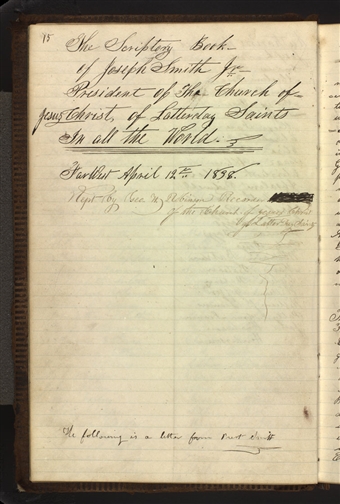 15
The Scriptory Book—
of Joseph Smith Jr—
President of The Church of
Jesus Christ, of Latterday Saints
In all the World.
Far West April 12th 1838.
Kept by Geo W Robinson Recorder
of the
of Latter day
The following is a letter from Prest Smith